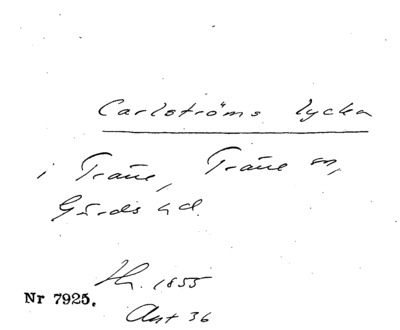 Carlströms lycka
i Träne, Träne sn,
Gärds hd.
Th. 1855
Nr 7925.
Ant 36